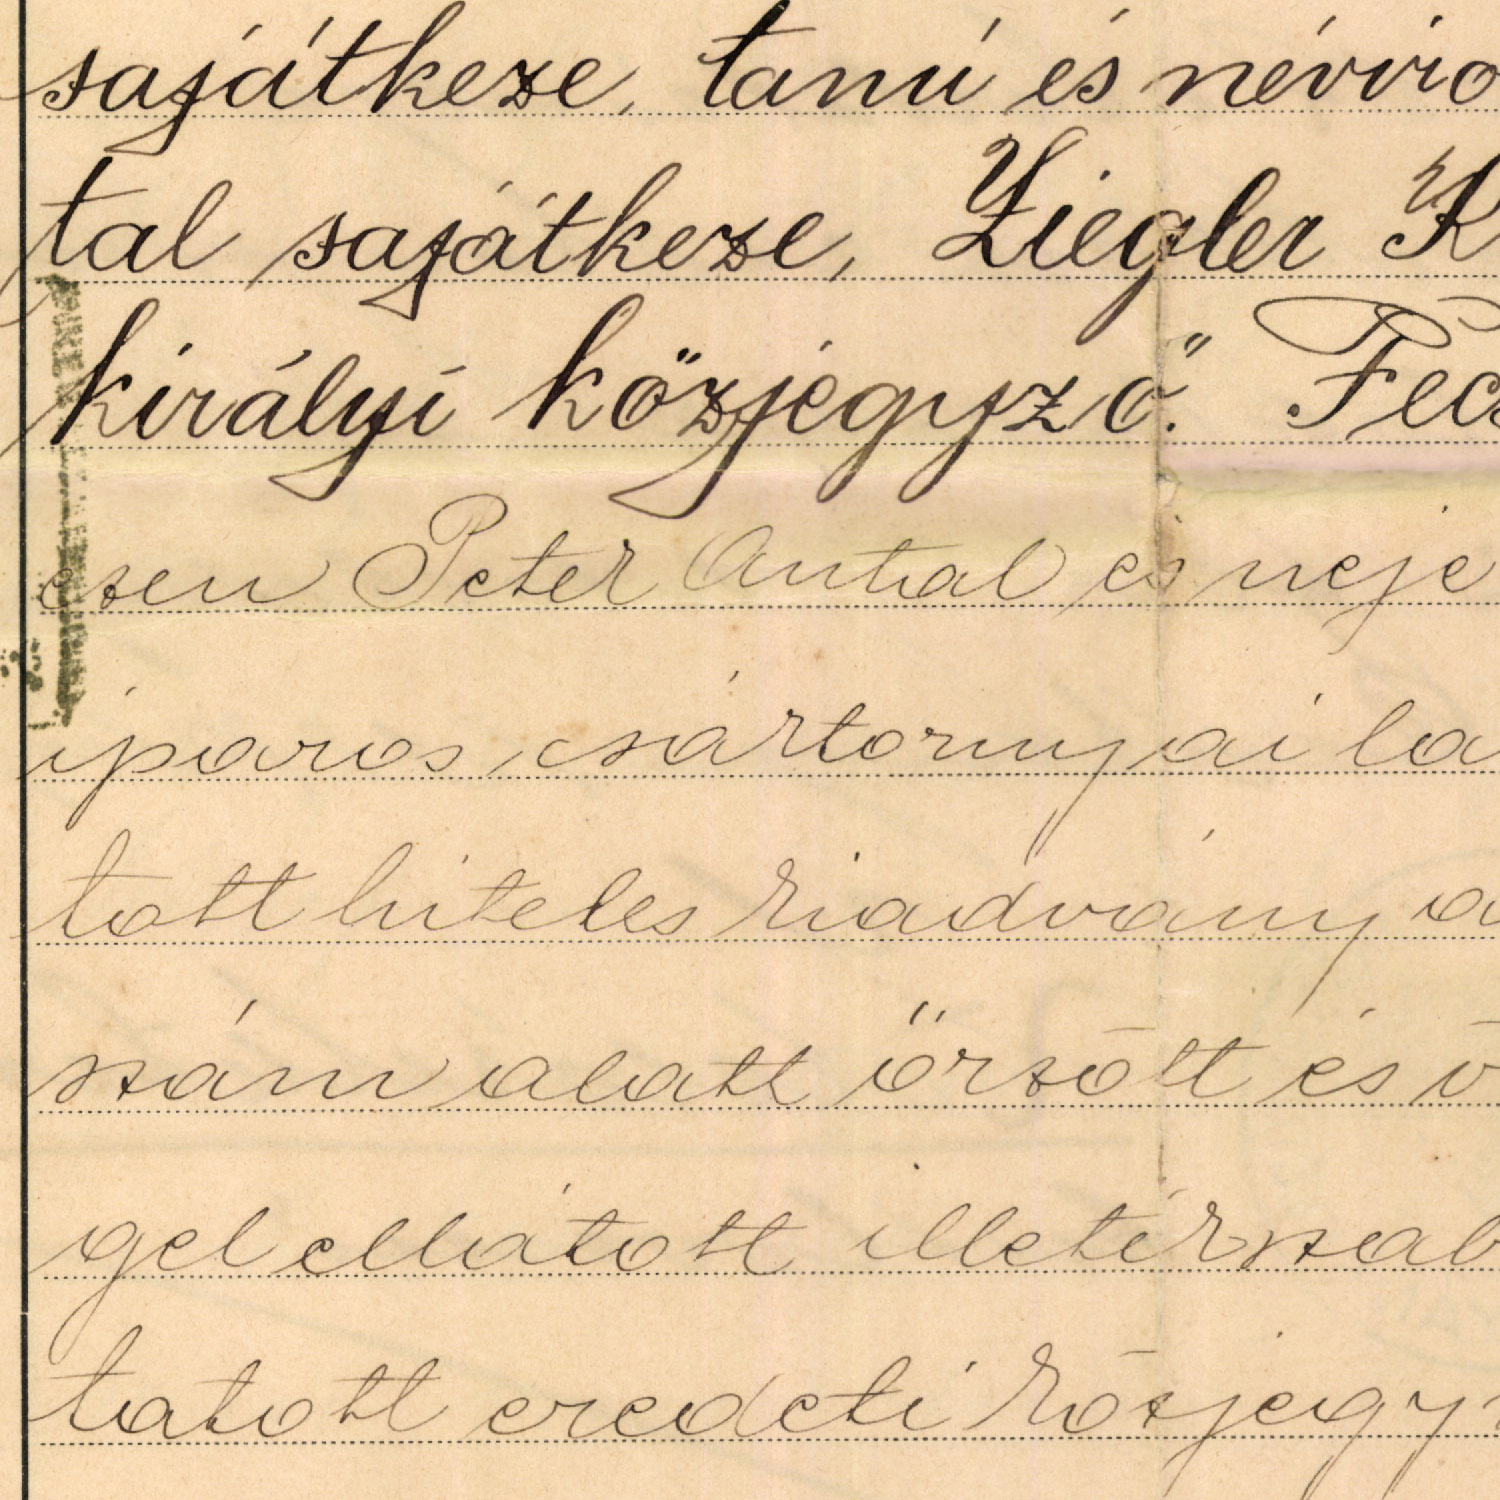 sajátkeze, tanú és névíró
tal sajátkeze, Ziegler K
királyi közjegyző." Fecs
esen Péter Antal és neje
iparos, csártornyai la
tott hiteles kiadvány a
szám alatt őrzött és
gel ellátott illeték szab
tatott eredeti közjegy